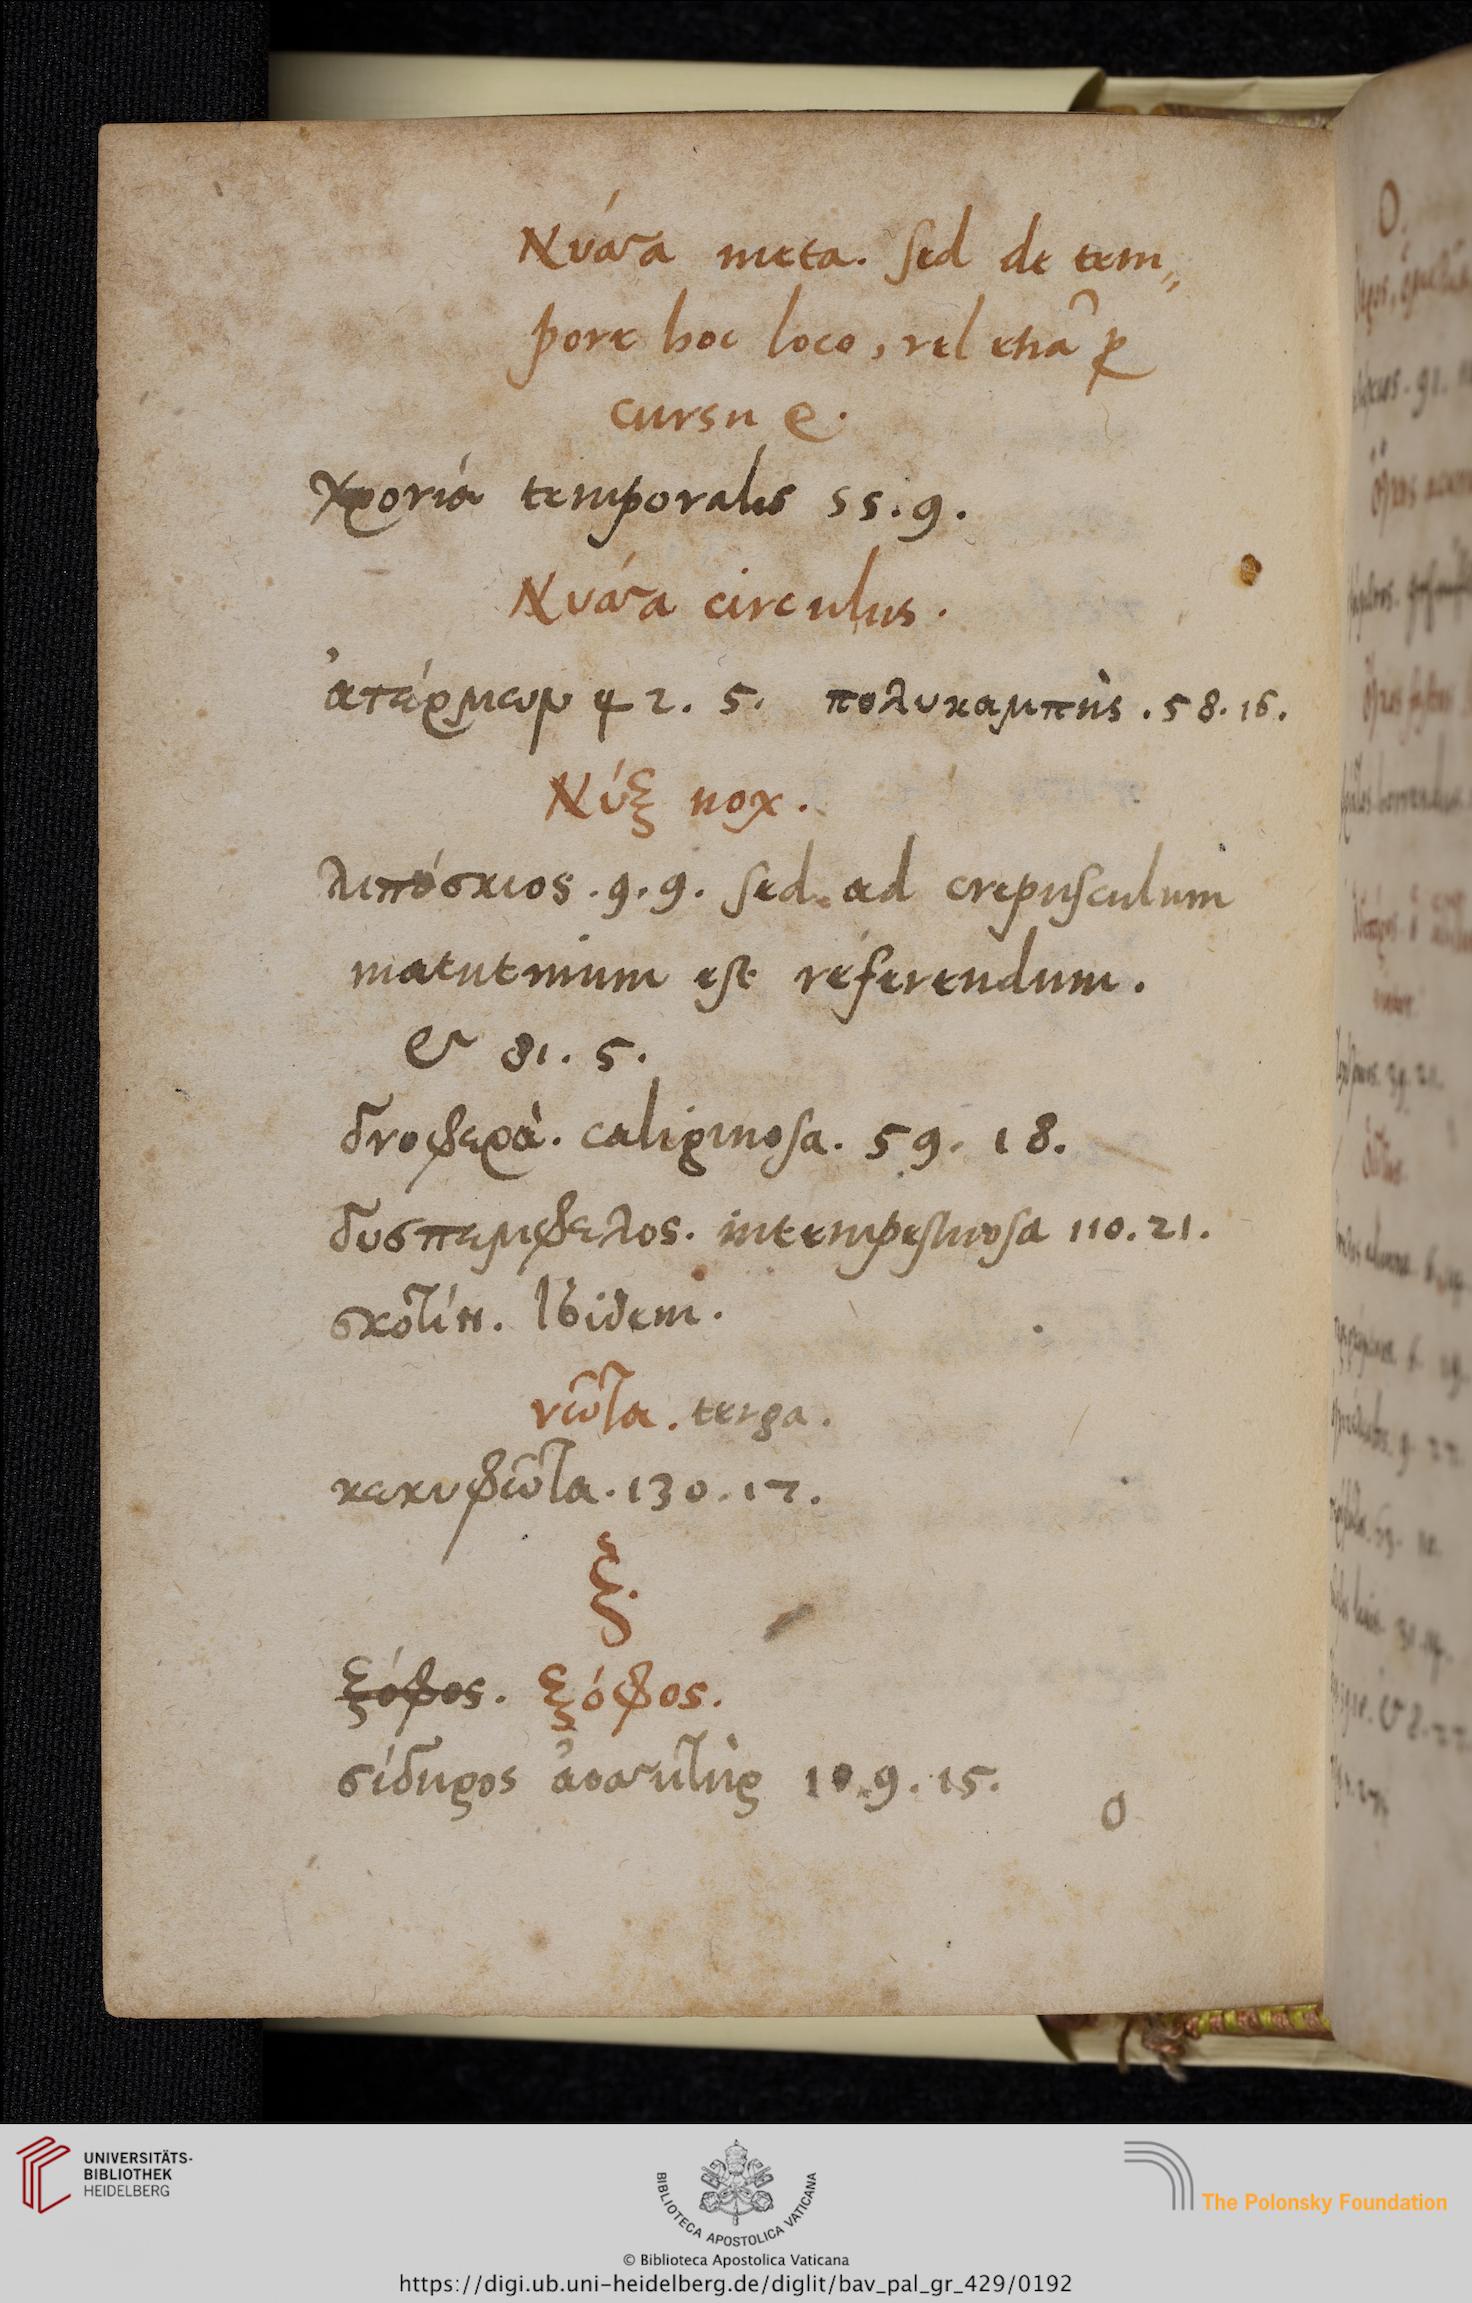 Νύσσα meta. sed de tem„
pore hoc loco, vel etiã ꝑ
cursu e.
χρονία temporalis 55. 9.
Νύσσα circulus.
ἀτέρμων 42. 5. πολυκαμπὴς. 58. 16.
Νύξ nox.
λιπόσκιος. 9. 9. sed ad crepusculum
matutinum est referendum.
& 81. 5.
δνοφερὰ. caliginosa. 59. 18.
δυσπεμφελος. intempestuosa 110. 21.
σκοτίη. Ibidem.
νῶτα. terga.
κεκυφῶτα. 130. 17.
ξ.
ξόφος. ξόφος.
σίδηρος 109. 15.
O
O.
UNIVERSITÄTS-
BIBLIOTHEK
HEIDELBERG
BIBLIOTECA APOSTOLICA VATICANA
© Biblioteca Apostolica Vaticana
The Polonsky Foundation
https://digi.ub.uni-heidelberg.de/diglit/bav_pal_gr_429/0192